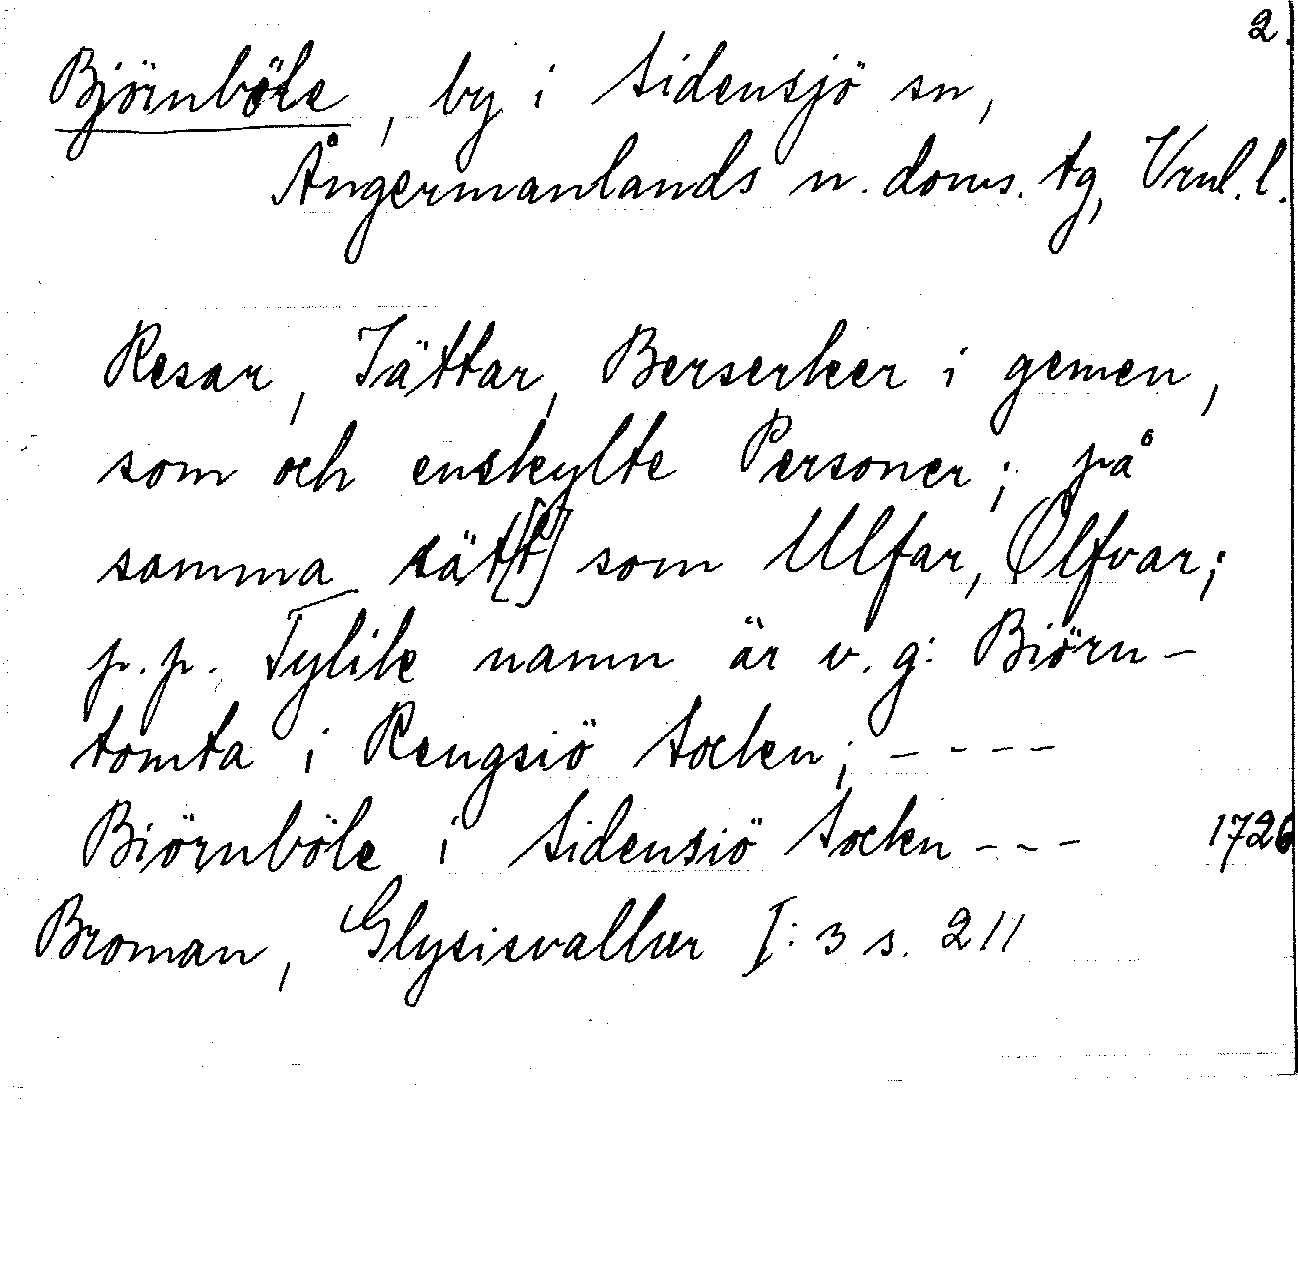 2.
Björnböle, by i Sidensjö sn,
Ångermanlands n. doms. tg, Vrnl. l.
Resar, Jättar, Berserker i gemen,
som och enskylte Personer; på
samma sätt[t] som Ulfar, Olfvar;
p.p. Tylik namn är v. g: Biörn-
tomta i Rengsiö Socken; - - - -
Biörnböle i Sidensiö Socken - - - 1726
Broman, Glysisvallur I: 3 s. 211